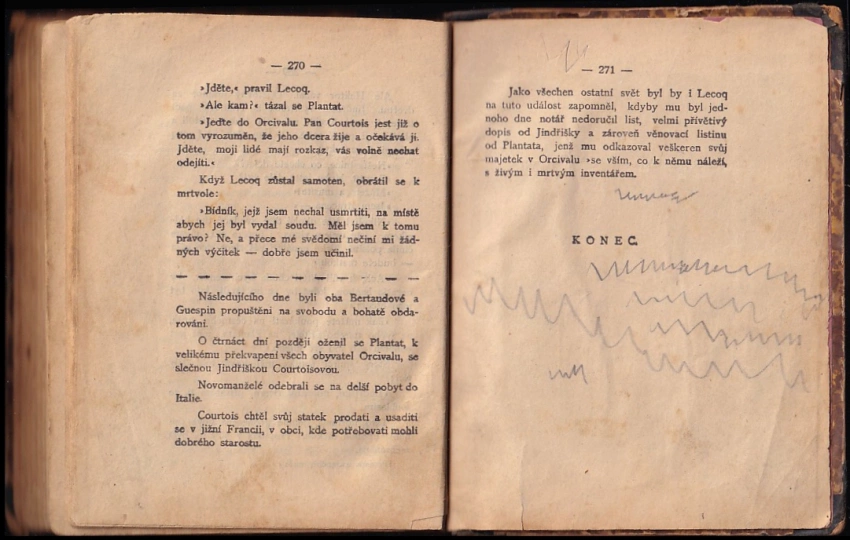 — 270 —
»Jděte,« pravil Lecoq.
»Ale kam?« tázal se Plantat.
»Jeďte do Orcivalu. Pan Courtois jest již o
tom vyrozuměn, že jeho dcera žije a očekává ji.
Jděte, moji lidé mají rozkaz, vás volně nechat
odejíti.«
Když Lecoq zůstal samoten, obrátil se k
mrtvole:
»Bídník, jejž jsem nechal usmrtiti, na místě
abych jej byl vydal soudu. Měl jsem k tomu
právo? Ne, a přece mé svědomí nečiní mi žád-
ných výčitek — dobře jsem učinil.
— — — — — — — — — —
Následujícího dne byli oba Bertaudové a
Guespin propuštěni na svobodu a bohatě obda-
rování.
O čtrnáct dní později oženil se Plantat, k
velikému překvapení všech obyvatel Orcivalu, se
slečnou Jindřiškou Courtoisovou.
Novomanželé odebrali se na delší pobyt do
Italie.
Courtois chtěl svůj statek prodati a usaditi
se v jižní Francii, v obci, kde potřebovati mohli
dobrého starostu.
— 271 —
Jako všechen ostatní svět byl by i Lecoq
na tuto událost zapomněl, kdyby mu byl jed-
noho dne notář nedoručil list, velmi přívětivý
dopis od Jindřišky a zároveň věnovací listinu
od Plantata, jenž mu odkazoval veškeren svůj
majetek v Orcivalu »se vším, co k němu náleží,
s živým i mrtvým inventářem.
KONEC